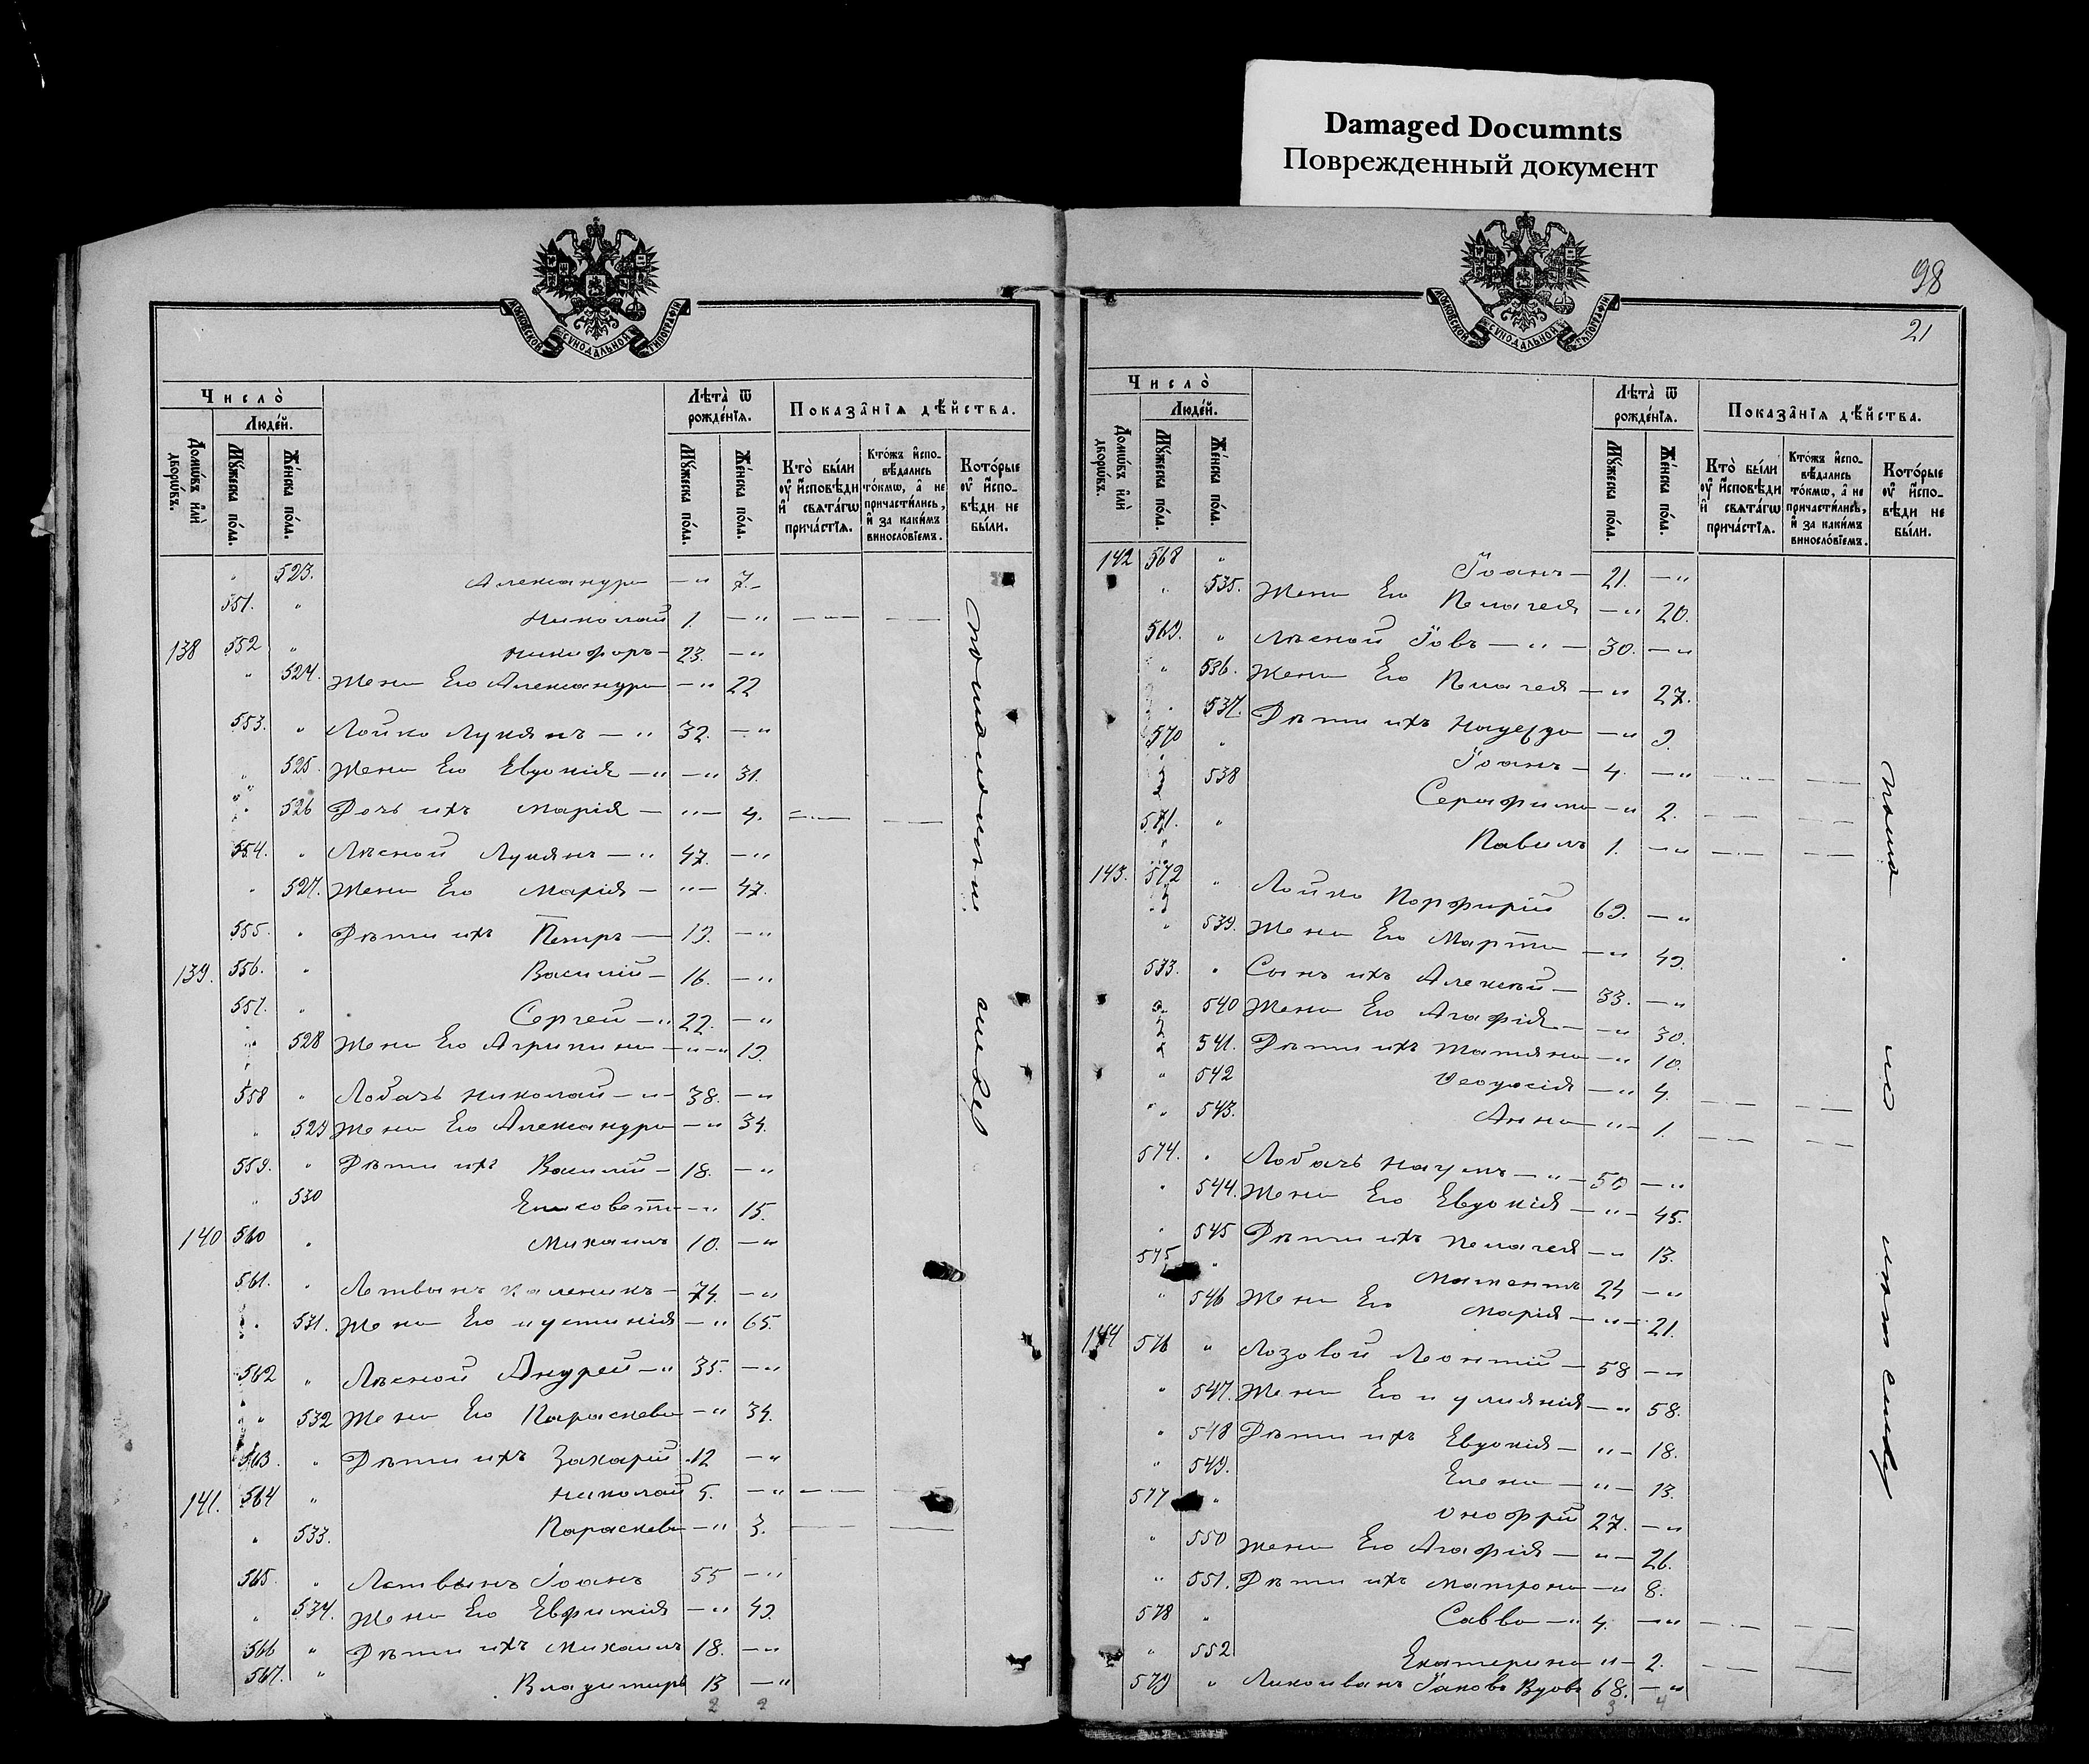 Damaged Documnts
Поврежденный документ
МОСКОВСКОЙ СѴНОДАЛЬНОЙ ТИПОГРАФІИ
Число̀
Люде́й.
Домѡ́въ и҆лѝ дворѡ́въ.
Мꙋ́жеска по́ла.
Же́нска по́ла.
Лѣта̀ ѿ рожде́нїѧ.
Мꙋ́жеска по́ла.
Же́нска по́ла.
Показа̑нїѧ дѣ́йства.
Кто̀ бы́ли
ᲂу҆ и҆́сповѣди
и҆ свѧта́гѡ
прича́стїѧ.
Кто́жъ и҆спо-
вѣ́дались
то́кмѡ, а҆ не
причасти́лись,
и҆ за каки́мъ
виносло́вїемъ.
Кото́рые
ᲂу҆ и҆́спо-
вѣди не
бы́ли.
" 523. Александра — " 7.
551. " Николай 1. — "
138 552 " Никифоръ — 23. — "
" 524. Жена Его Александра — " 22
553. " Лойко Лукянъ — " 32. — "
" 525. Жена Его Евдокія — " — " 31.
" 526 Дочь ихъ Марія — " — 4.
554. " Лѣсной Лукянъ — " 47. — "
" 527. Жена Его Марія — " — 47.
555. " Дѣти ихъ Петръ — 19. — "
139. 556. " Василій — 16. — "
557. " Сергей — " 22. — "
" 528 Жена Его Агрипина — " — " 19.
558 " Лобачъ Николай — " — 38. — "
" 529 Жена Его Александра — " 34.
559. " Дѣти ихъ Василій — 18. — "
" 530 Елисовета — " 15.
140 560 " Михаилъ 10. — "
561. " Летвынъ Каленикъ — 74. — "
" 531. Жена Его Иустинія — " 65.
562 " Лѣсной Андрей — " 35. — "
" 532 Жена Его Параскева — " 34.
563. " Дѣти ихъ Захарій 12 — "
141. 564 " Николай 5. — "
" 533. Параскева — " 3.
565. " Летвынъ Іоанъ 55 — "
" 534. Жена Его Евфимія — " 49.
566 " Дѣти ихъ Михаилъ 18. — "
567. " Владимиръ 13 — "
2 2
98
21
МОСКОВСКОЙ СѴНОДАЛЬНОЙ ТИПОГРАФІИ
Число̀
Люде́й.
Домѡ́въ и҆лѝ дворѡ́въ.
Мꙋ́жеска по́ла.
Же́нска по́ла.
Лѣта̀ ѿ рожде́нїѧ.
Мꙋ́жеска по́ла.
Же́нска по́ла.
Показа̑нїѧ дѣ́йства.
Кто̀ бы́ли
ᲂу҆ и҆́сповѣди
и҆ свѧта́гѡ
прича́стїѧ.
Кто́жъ и҆спо-
вѣ́дались
то́кмѡ, а҆ не
причасти́лись,
и҆ за каки́мъ
виносло́вїемъ.
Кото́рые
ᲂу҆ и҆́спо-
вѣди не
бы́ли.
142 568 " Іоанъ — 21. — "
" 535. Жена Его Пелагея — " 20.
569. " Лѣсной Іовъ — " — 30. — "
" 536. Жена Его Пелагея — " 27.
" 537. Дѣти ихъ Надежда — " 9.
570 " Іоанъ — 4. — "
538 Серафима — " 2.
571. " Павилъ 1. — "
143. 572 " Лойко Порфирій 69. — "
" 539. Жена Его Марта — " 49.
533. " Сынъ ихъ Алексѣй — 33. — "
540 Жена Его Агафія — " 30.
541. Дѣти ихъ Татіяна — " 10.
" 542 Феодосія — " 4.
" 543. Анна — " — 1.
574. " Лобачъ Наумъ — " — 50 — "
" 544. Жена Его Евдокія — " — 45.
" 545 Дѣти ихъ Пелагея — " 13.
575 " 24 — "
" 546 Жена Его Марія — " — 21.
144 576 " Лозовой Леонтій — 58 — "
" 547. Жена Его Иулиянія — " 58.
" 548 Дѣти ихъ Евдокія — " — 18.
" 549. Елена — " — 13.
577 " Онофрій 27. — "
" 550 Жена Его Агафія — " — 26.
" 551. Дѣти ихъ Матрона — " 8.
578 " Савва — " 4. — "
" 552 Екатерина — " — 2.
579 " Іаковъ Вдовъ 68. — "
3 4